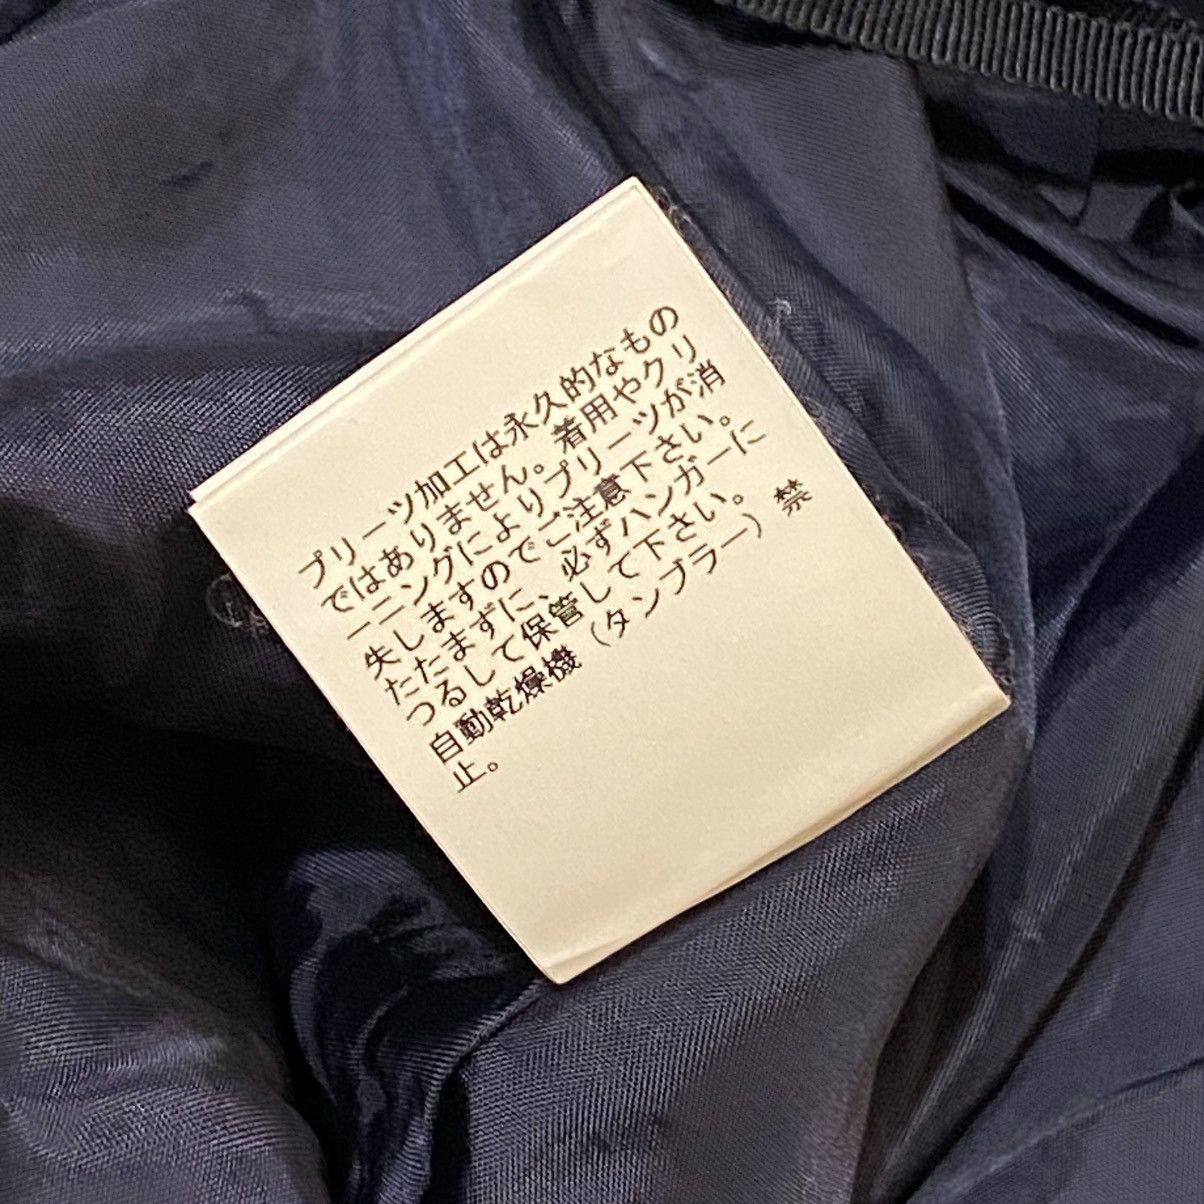 プリーツ加工は永久的なもの
ではありません。着用やクリ
ーニングによりプリーツが消
失しますのでご注意下さい。
たたまずに、必ずハンガーに
つるして保管して下さい。
自動乾燥機（タンブラー）禁
止。